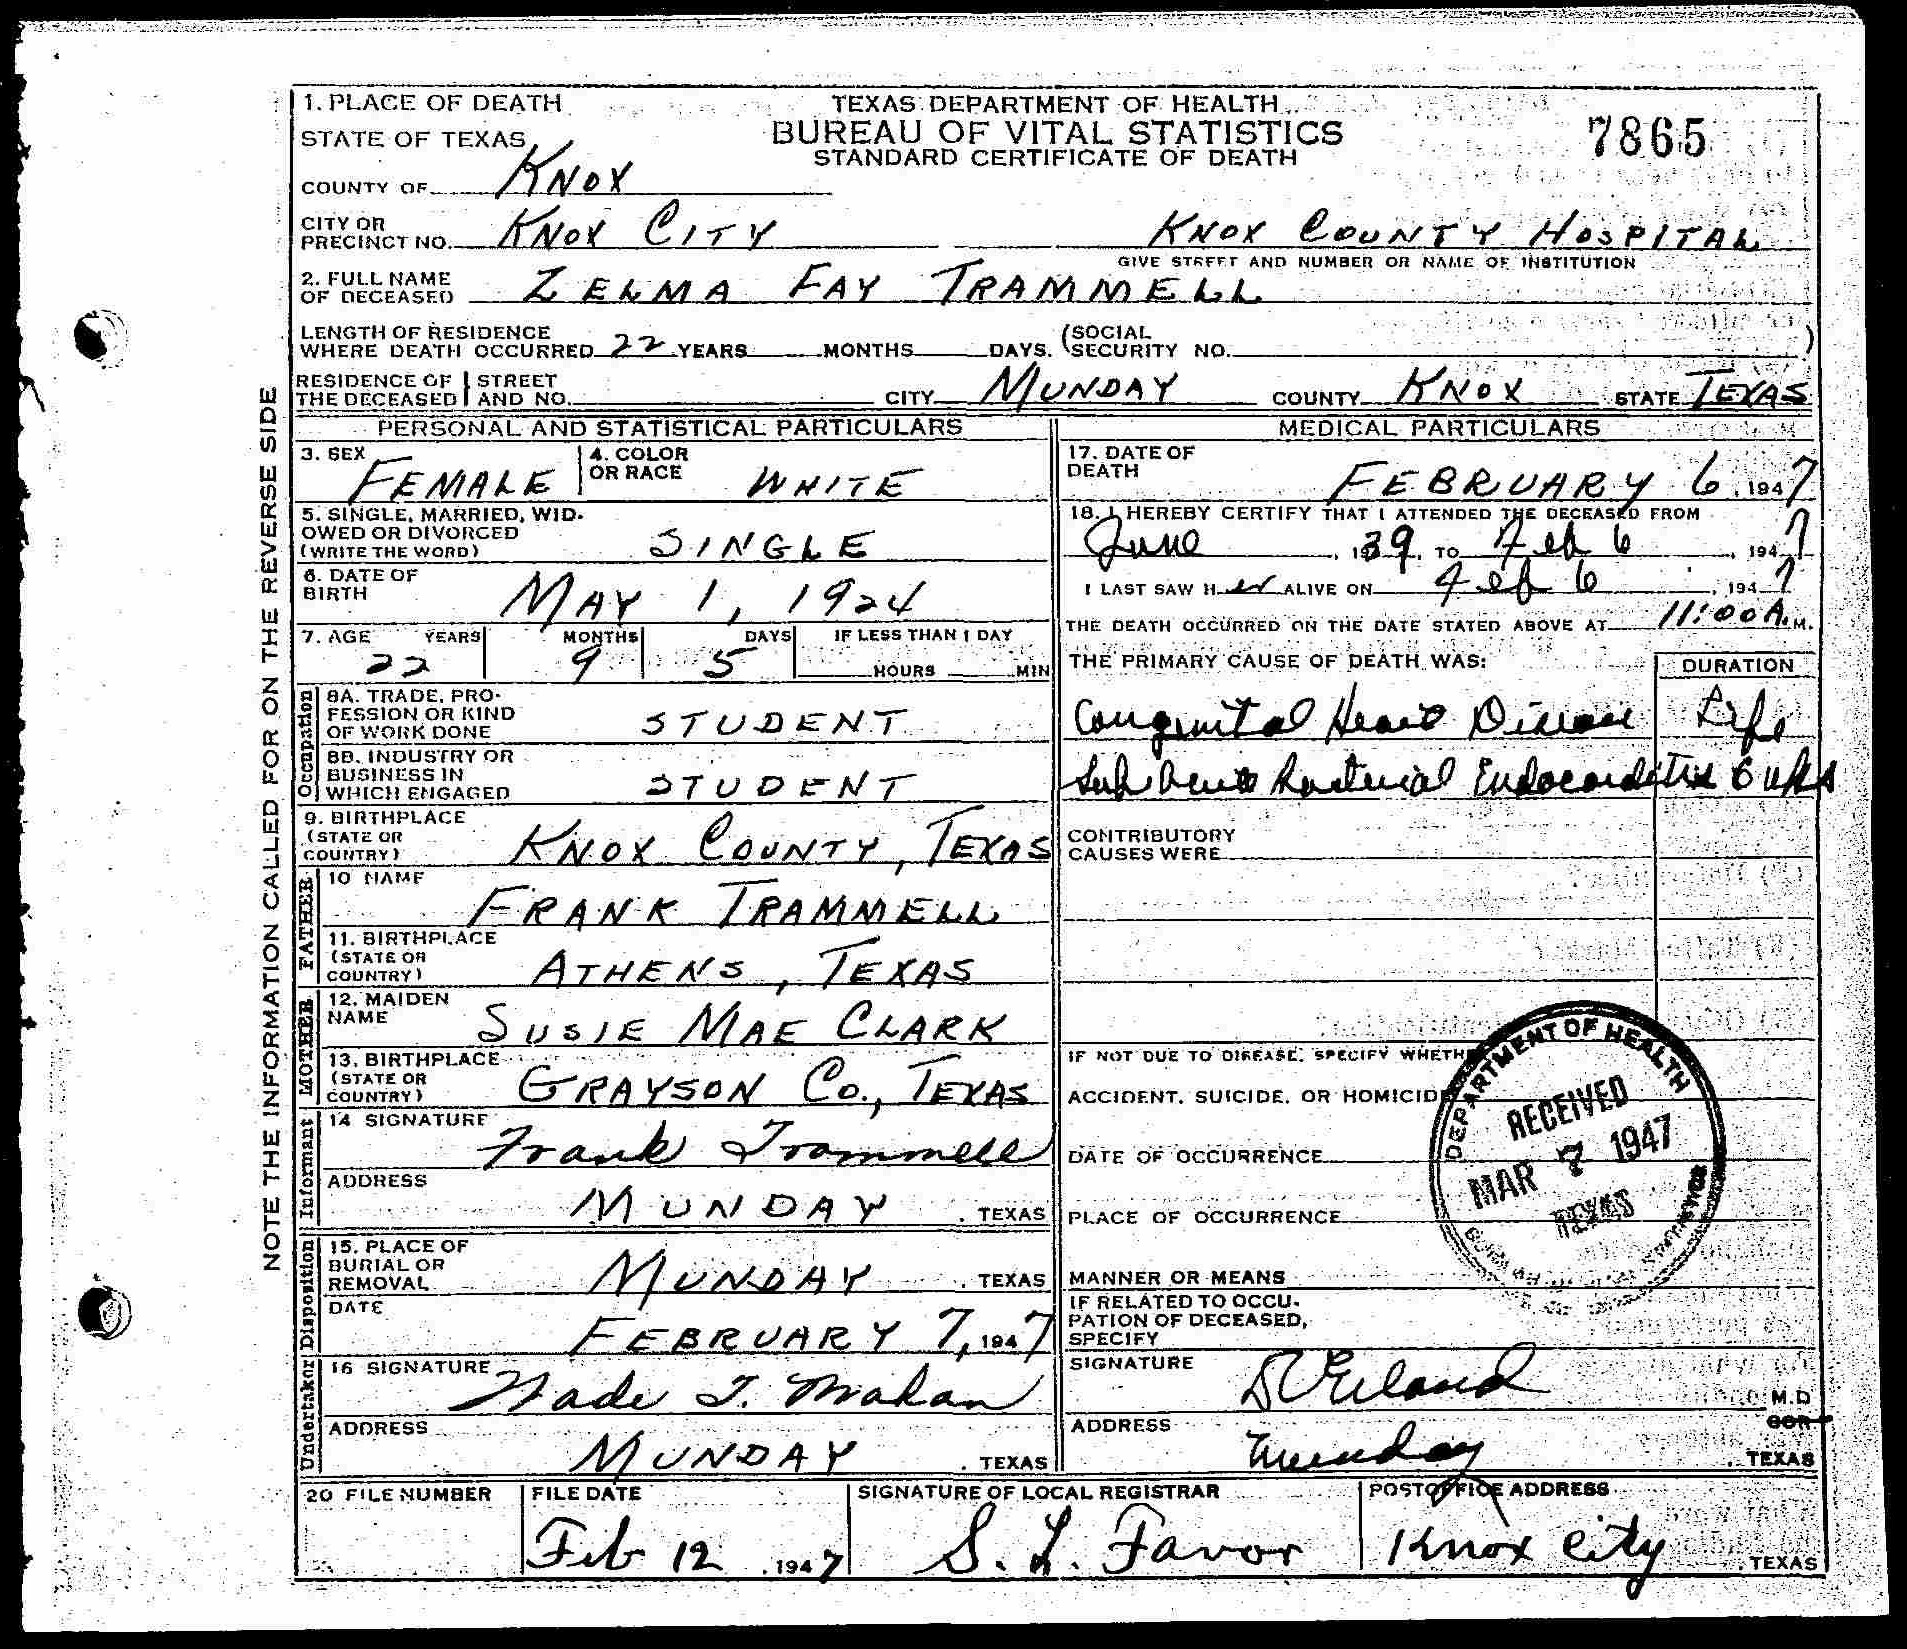 1. PLACE OF DEATH
STATE OF TEXAS
COUNTY OF KNOX
TEXAS DEPARTMENT OF HEALTH
BUREAU OF VITAL STATISTICS
STANDARD CERTIFICATE OF DEATH
7865
CITY OR PRECINCT NO. KNOX CITY
KNOX COUNTY HOSPITAL
GIVE STREET AND NUMBER OR NAME OF INSTITUTION
2. FULL NAME OF DECEASED ZELMA FAY TRAMMELL
LENGTH OF RESIDENCE WHERE DEATH OCCURRED 22 YEARS MONTHS DAYS. (SOCIAL SECURITY NO. )
RESIDENCE OF THE DECEASED STREET AND NO. CITY MUNDAY COUNTY KNOX STATE TEXAS
NOTE THE INFORMATION CALLED FOR ON THE REVERSE SIDE
PERSONAL AND STATISTICAL PARTICULARS
3. SEX FEMALE
4. COLOR OR RACE WHITE
5. SINGLE, MARRIED, WIDOWED OR DIVORCED (WRITE THE WORD) SINGLE
6. DATE OF BIRTH MAY 1, 1924
7. AGE YEARS 22 MONTHS 9 DAYS 5 IF LESS THAN 1 DAY HOURS MIN
Occupation
8A. TRADE, PROFESSION OR KIND OF WORK DONE STUDENT
8B. INDUSTRY OR BUSINESS IN WHICH ENGAGED STUDENT
9. BIRTHPLACE (STATE OR COUNTRY) KNOX COUNTY, TEXAS
FATHER
10 NAME FRANK TRAMMELL
11. BIRTHPLACE (STATE OR COUNTRY) ATHENS, TEXAS
MOTHER
12. MAIDEN NAME SUSIE MAE CLARK
13. BIRTHPLACE (STATE OR COUNTRY) GRAYSON CO., TEXAS
Informant
14 SIGNATURE Frank Trammell
ADDRESS MUNDAY, TEXAS
Disposition
15. PLACE OF BURIAL OR REMOVAL MUNDAY, TEXAS
DATE FEBRUARY 7, 1947
Undertaker
16 SIGNATURE Wade T. Mahan
ADDRESS MUNDAY, TEXAS
MEDICAL PARTICULARS
17. DATE OF DEATH FEBRUARY 6, 1947
18. I HEREBY CERTIFY THAT I ATTENDED THE DECEASED FROM
June, 1939, TO Feb 6, 1947
I LAST SAW HER ALIVE ON Feb 6, 1947
THE DEATH OCCURRED ON THE DATE STATED ABOVE AT 11:00 A.M.
THE PRIMARY CAUSE OF DEATH WAS: DURATION
Congenital Heart Disease Life
Sub Acute Bacterial Endocarditis 6 wks
CONTRIBUTORY CAUSES WERE
IF NOT DUE TO DISEASE, SPECIFY WHETH
ACCIDENT, SUICIDE, OR HOMICIDE
DATE OF OCCURRENCE
PLACE OF OCCURRENCE
MANNER OR MEANS
DEPARTMENT OF HEALTH
RECEIVED
MAR 7 1947
TEXAS
IF RELATED TO OCCUPATION OF DECEASED, SPECIFY
SIGNATURE M.D
COR
ADDRESS Munday, TEXAS
20 FILE NUMBER
FILE DATE Feb 12, 1947
SIGNATURE OF LOCAL REGISTRAR S. L. Favor
POSTOFFICE ADDRESS Knox City, TEXAS